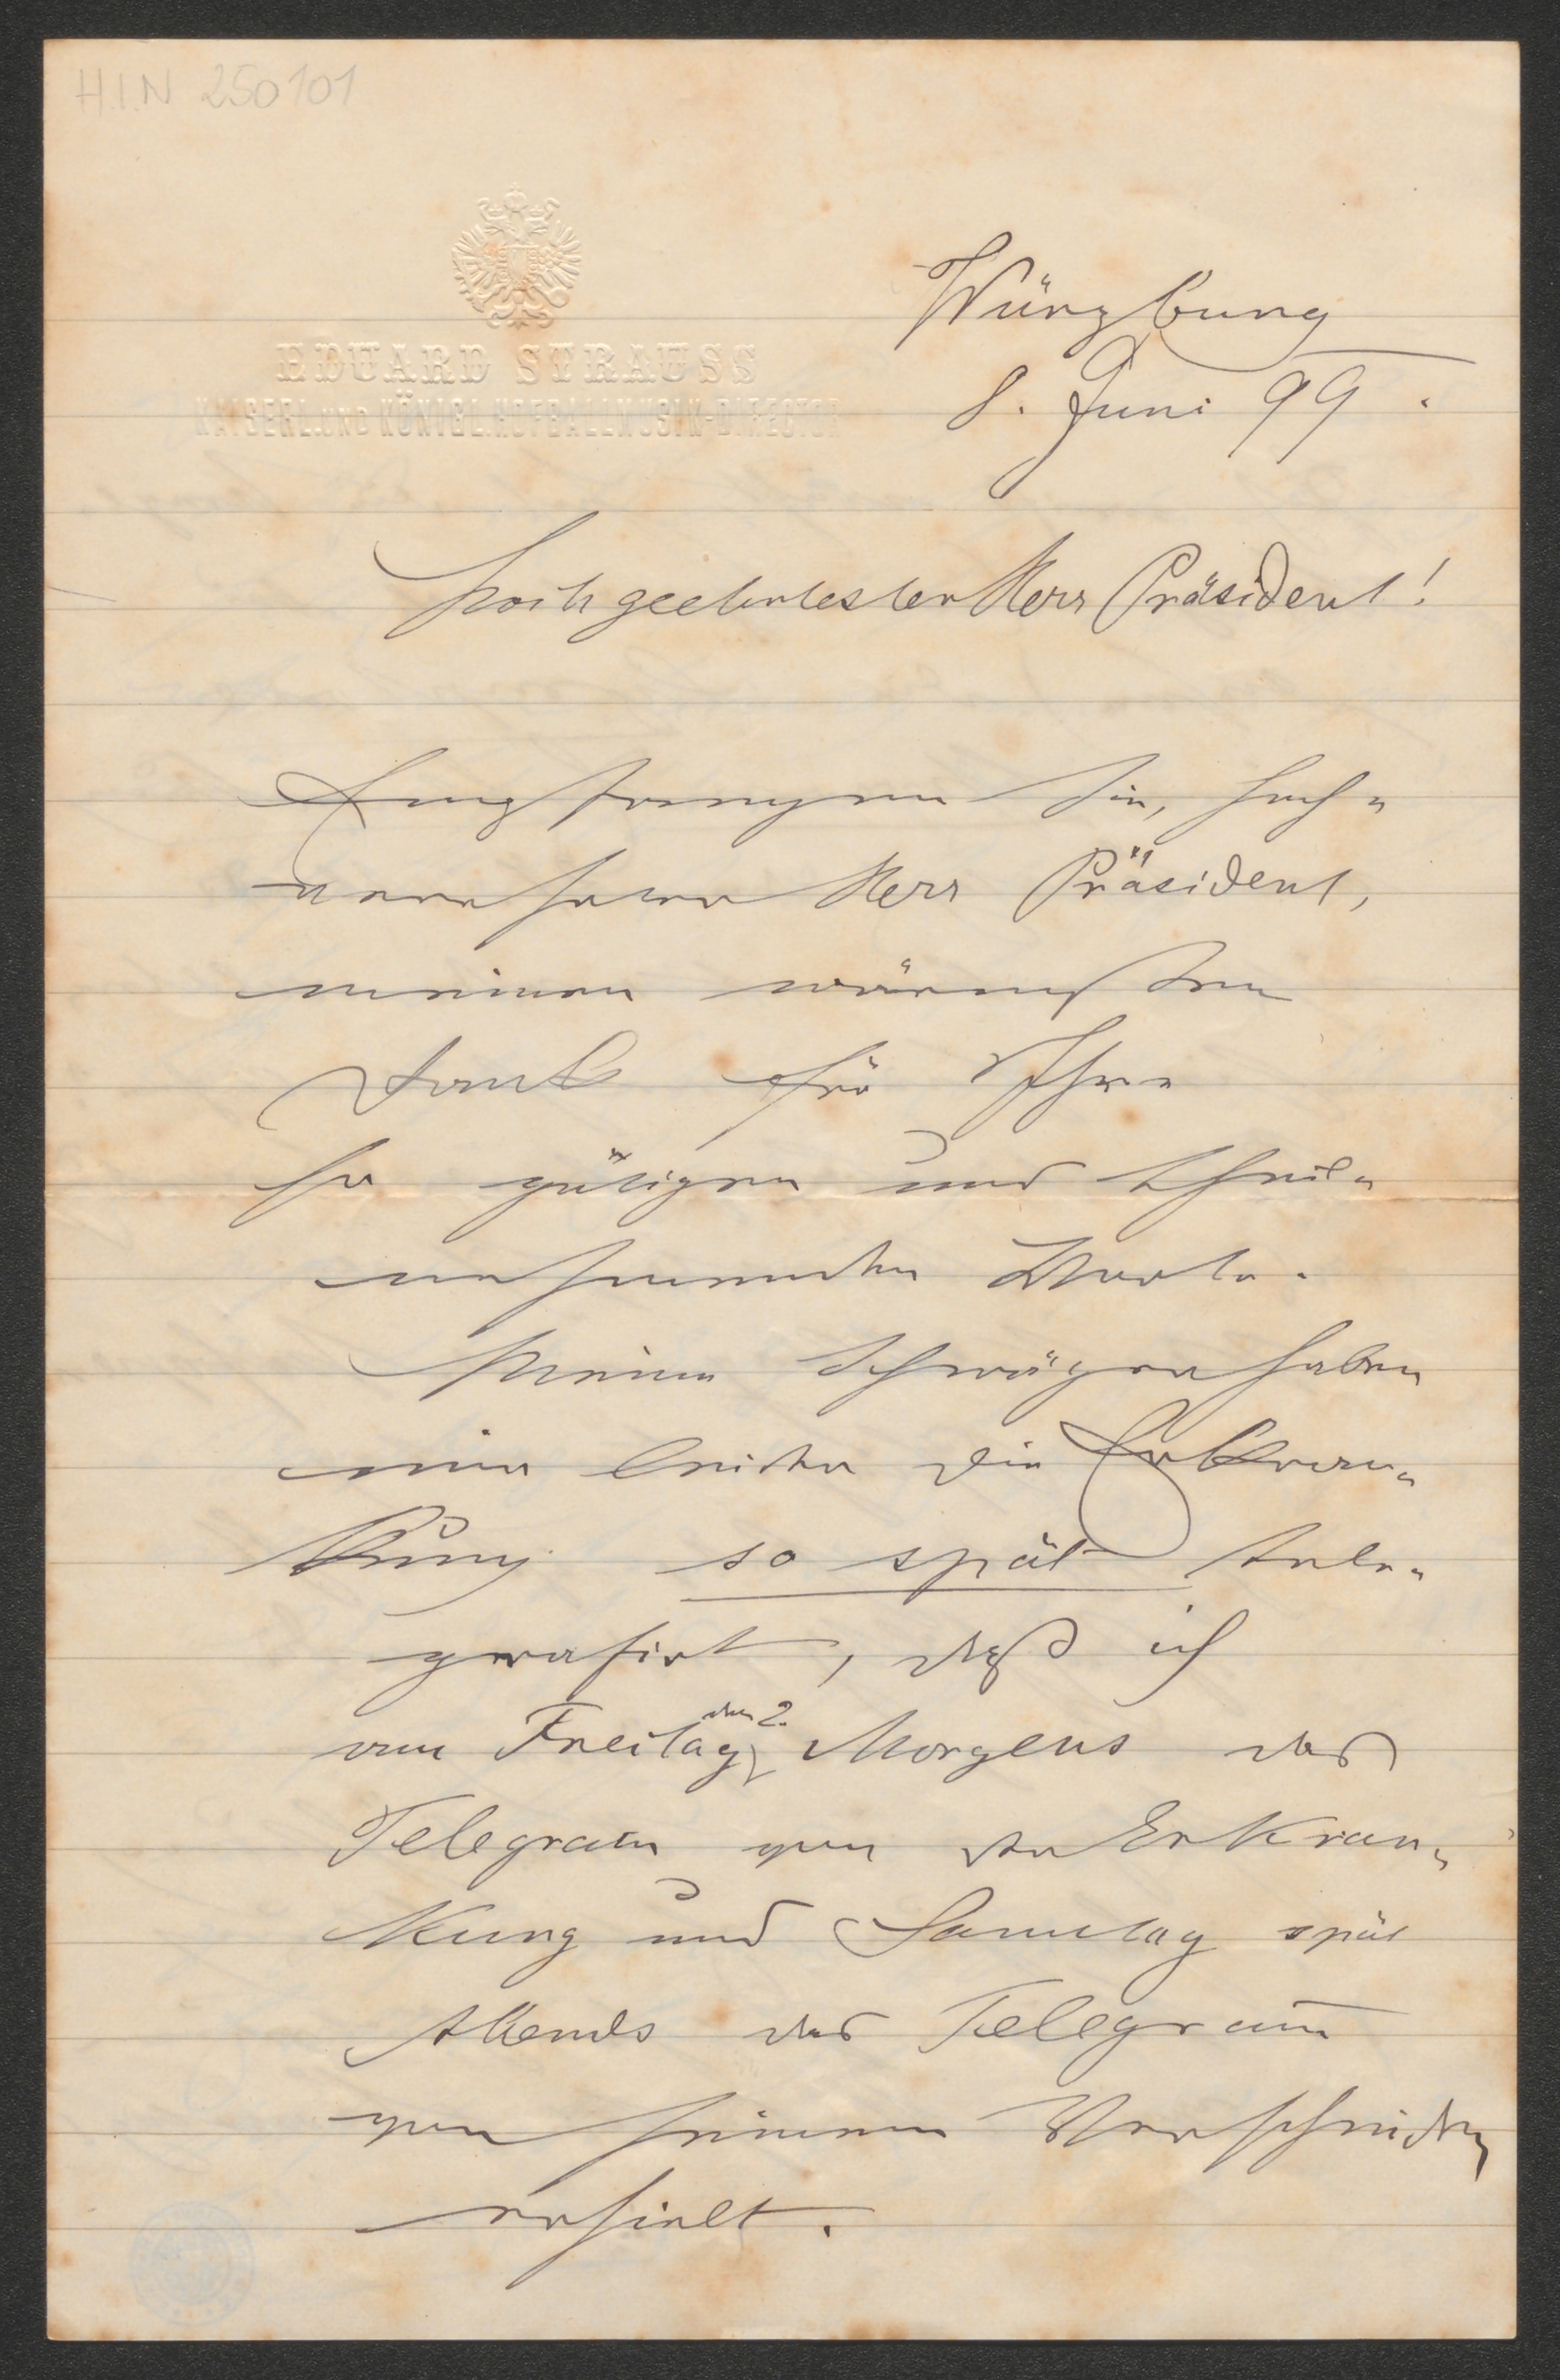 H.I.N 250101
EDUARD STRAUSS
KAISERL. UND KÖNIGL. HOFBALLMUSIK-DIRECTOR
Würzburg
8. Juni 99.
Hochgeehrtester Herr Präsident!
Empfangen Sie, hoch-
verehrter Herr Präsident,
meinen wärmsten
Dank für Ihre
so gütigen und theil-
nehmenden Worte.
Meine Schwäger haben
mir leider die Erkran-
kung so spät tele-
grafirt, daß ich
am Freitag den 2. Morgens das
Telegram von der Erkran-
kung und Samstag spät
Abends das Telegram̄
von seinem Verscheiden
erhielt.